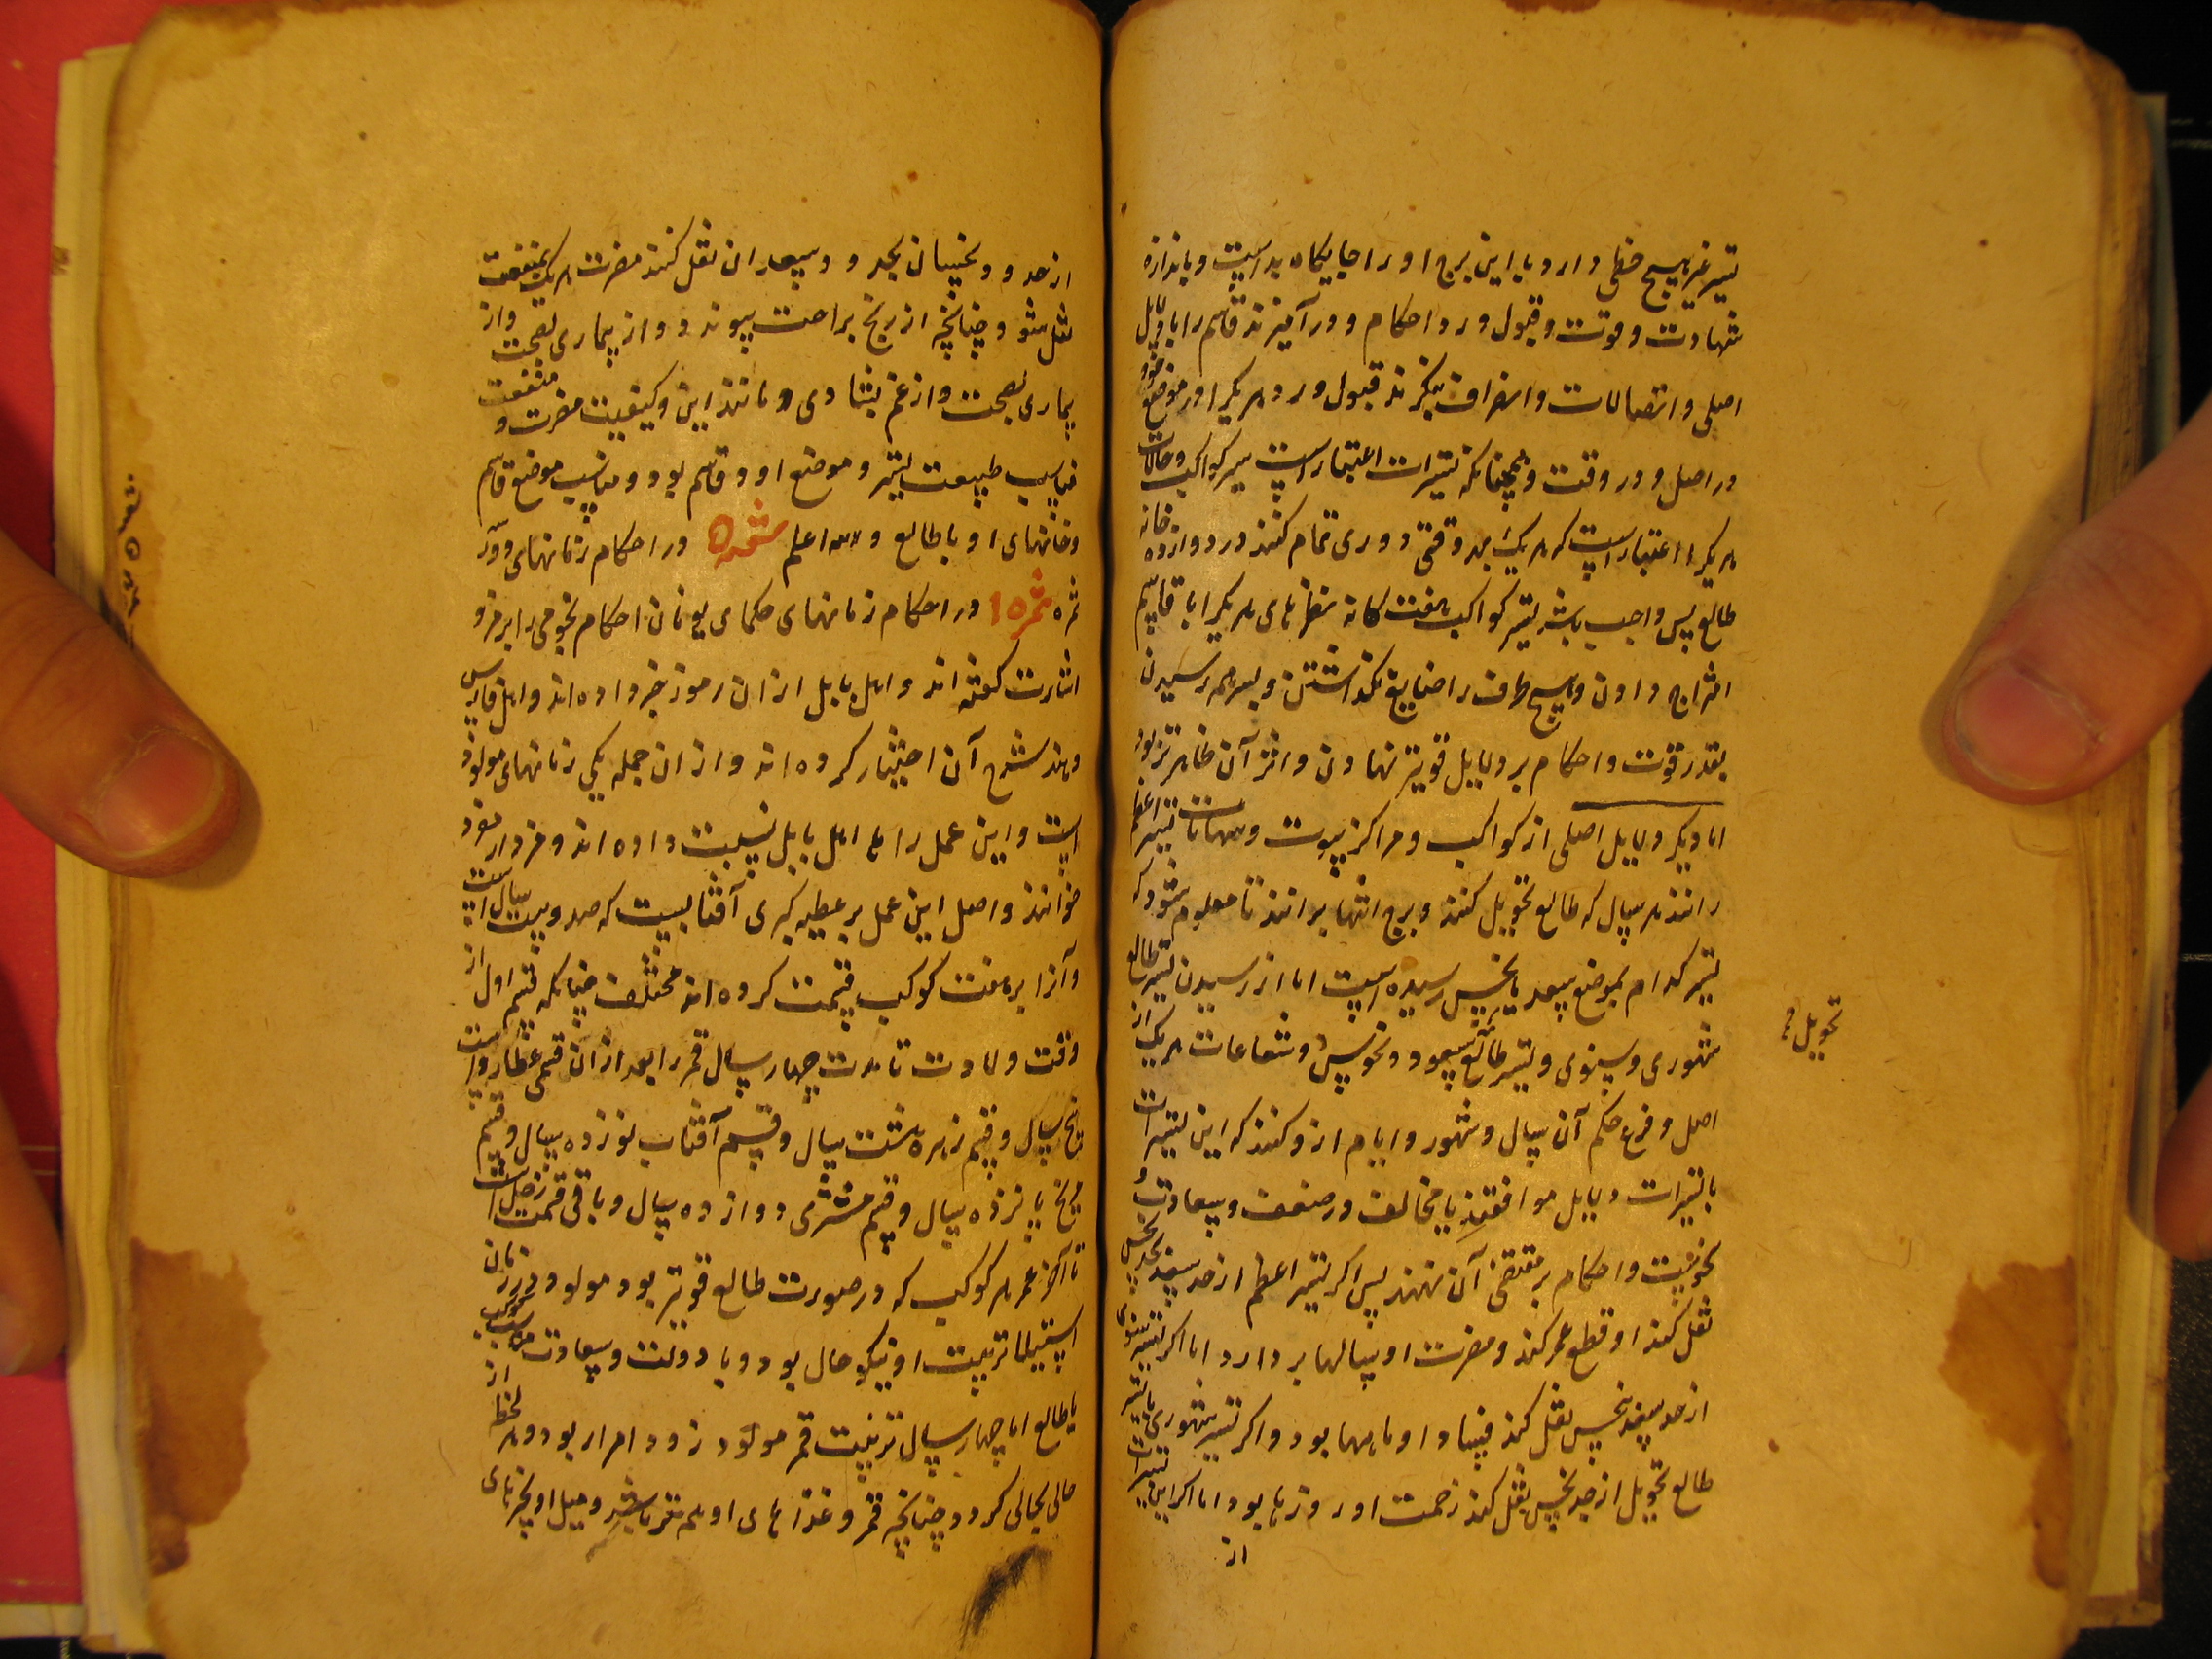 تسیر غیر هیچ حظی دارد یا این برج او را جایکاه بد است و باندازه
شهادت و قوت و قبول و رد احکام و در آمیزند قاسم را با دلایل
اصلی و اتصالات و انصراف بنکرند قبول و رد هریکرا در موضع خود
در اصل و در وقت و همچنانکه تسیرات اعتبار است سیر کواکب و حالات
هریکرا اعتبار است که هر یک بد وقتی دوری تمام کنند در دوازده خانه
طالع پس واجب باشد تسیر کواکب هفت کانه نظرهای هریکرا با قاسم
امتزاج دادن و هیچ طرف را ضایع نکذاشتن و بسر همه رسیدن
بقدر قوت و احکام بر دلایل قویتر نهادن و اثر آن ظاهرتر بود
اما دیکر دلایل اصلی از کواکب و مراکز بیوت و سهامات تسیر اعظم
رانند هر سال که طالع تحویل کنند و برج انتها برانند تا معلوم شود که
تسیر کدام بموضع سعد یا نحس رسیده است اما از رسیدن تسیر طالع
تحویل
شهوری و سنوی و تسیر طالع بسعود و نحوس و شعاعات هر یک از
اصل و فرع حکم آن سال و شهور و ایام ازو کنند که این تسیرات
با تسیرات دلایل موافقند یا مخالف در ضعف و سعادت و
نحوست و احکام بر مقتضی آن نهند پس اکر تسیر اعظم از حد سعد بحد نحس
نقل کند او قطع عمر کند و مضرت او سالها بر دارد اما اکر تسیر سنوی
از حد سعد بنحس نقل کند فساد او ماهها بود و اکر تسیر شهوری یا تسیر
طالع تحویل از حد بنحس نقل کند زحمت او روزها بود اما اکر این تسیرات
از
از حدود نحسان بحدود سعدان نقل کنند مضرت هر یک بمنفعت
نقل شود چنانچه از رنج براحت پیوندد و از بیماری بصحت و از
بیماری بصحت و از غم بشادی و مانند این و کیفیت مضرت و منفعت
مناسب طبیعت تسیر و موضع او و قاسم بود و مناسب موضع قاسم
و خانهای او با طالع والله اعلم ثمره در احکام زمانهای و در
ثمره ثمره ۱ در احکام زمانهای حکمای یونان احکام نجومی را برمز و
اشارت کفته اند و اهل بابل از ان رموز خبر داده اند و اهل فارس
و هند شرح آن اختیار کرده اند و از ان جمله یکی زمانهای مولود
است و این عمل را باهل بابل نسبت داده اند و فردار مفرد
خوانند و اصل این عمل بر عطیه کبری آفتابیست که صد و بیست سال است
و آنرا بر هفت کوکب قسمت کرده اند مختلف چنانکه قسم اول از
وقت ولادت تا مدت چهار سال قمر را بعد از ان قسم عطارد است
پنج سال و قسم زهره هشت سال و قسم آفتاب نوزده سال و قسم
مریخ پانزده سال و قسم مشتری دوازده سال و باقی قسمت زحل است
تا آخر عمر هر کوکب که در صورت طالع قویتر بود مولود در زمان
استیلا تربیت او نیکو حال بود و با دولت و سعادت
با طالع اما چهار سال تربیت قمر مولود زود امرار بود و هر لحظه از
حالی بحالی کردد چنانچه قمر و غذاهای او هم تر باشد و میل او بچیزهای